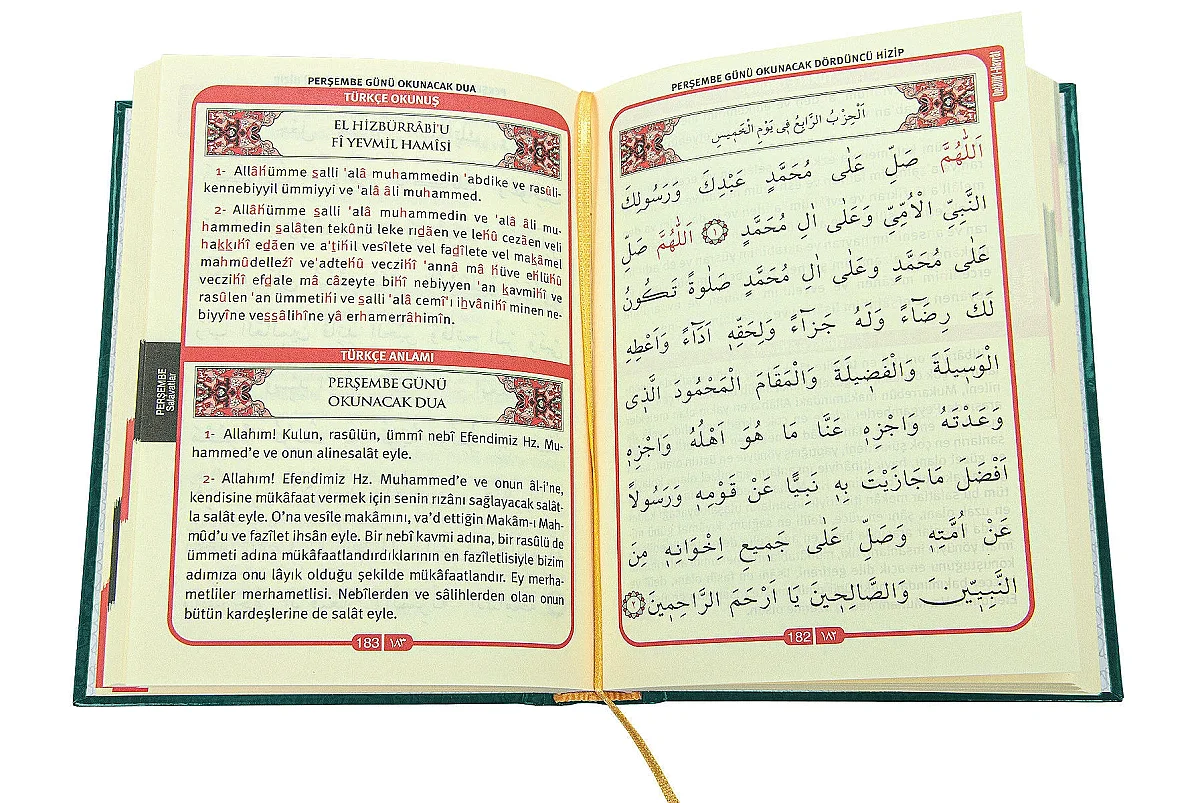 PERŞEMBE GÜNÜ OKUNACAK DÖRDÜNCÜ HİZİP
اَلْحِزْبُ الرَّابِعُ فِي يَوْمِ الْخَمِيسِ
اَللّٰهُمَّ صَلِّ عَلٰى مُحَمَّدٍ عَبْدِكَ وَرَسُولِكَ
النَّبِيِّ الْاُمِّيِّ وَعَلٰى اٰلِ مُحَمَّدٍ ١ اَللّٰهُمَّ صَلِّ
عَلٰى مُحَمَّدٍ وَعَلٰى اٰلِ مُحَمَّدٍ صَلٰوةً تَكُونُ
لَكَ رِضَاءً وَلَهُ جَزَاءً وَلِحَقِّهِ اَدَاءً وَاَعْطِهِ
الْوَسِيلَةَ وَالْفَضِيلَةَ وَالْمَقَامَ الْمَحْمُودَ الَّذِي
وَعَدْتَهُ وَاجْزِهِ عَنَّا مَا هُوَ اَهْلُهُ وَاجْزِهِ
اَفْضَلَ مَاجَازَيْتَ بِهِ نَبِيًّا عَنْ قَوْمِهِ وَرَسُولاً
عَنْ اُمَّتِهِ وَصَلِّ عَلٰى جَمِيعِ اِخْوَانِهِ مِنَ
النَّبِيِّينَ وَالصَّالِحِينَ يَا اَرْحَمَ الرَّاحِمِينَ ٢
182 ١٨٢
PERŞEMBE GÜNÜ OKUNACAK DUA
TÜRKÇE OKUNUŞ
EL HİZBÜRRÂBİ'U
FÎ YEVMİL HAMÎSİ
1- Allâhümme salli 'alâ muhammedin 'abdike ve rasûli-
kennebiyyil ümmiyyi ve 'alâ âli muhammed.
2- Allâhümme salli 'alâ muhammedin ve 'alâ âli mu-
hammedin salâten tekûnü leke rıdâen ve lehû cezâen veli
hakkıhî edâen ve a'tıhil vesîlete vel fadîlete vel makâmel
mahmûdellezî ve'adtehû veczihî 'annâ mâ hüve ehlühû
veczihî efdale mâ câzeyte bihî nebiyyen 'an kavmihî ve
rasûlen 'an ümmetihî ve salli 'alâ cemî'ı ihvânihî minen ne-
biyyîne vessâlihîne yâ erhamerrâhimîn.
TÜRKÇE ANLAMI
PERŞEMBE GÜNÜ
OKUNACAK DUA
1- Allahım! Kulun, rasûlün, ümmî nebî Efendimiz Hz. Mu-
hammed'e ve onun alinesalât eyle.
2- Allahım! Efendimiz Hz. Muhammed'e ve onun âl-i'ne,
kendisine mükâfaat vermek için senin rızânı sağlayacak salât-
la salât eyle. O'na vesîle makâmını, va'd ettiğin Makâm-ı Mah-
mûd'u ve fazîlet ihsân eyle. Bir nebî kavmi adına, bir rasûlü de
ümmeti adına mükâfaatlandırdıklarının en fazîletlisiyle bizim
adımıza onu lâyık olduğu şekilde mükâfaatlandır. Ey merha-
metliler merhametlisi. Nebîlerden ve sâlihlerden olan onun
bütün kardeşlerine de salât eyle.
183 ١٨٣
PERŞEMBE
Salavatlar